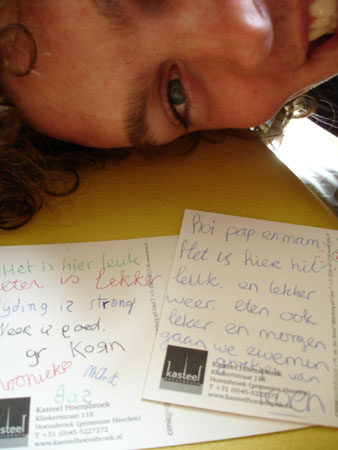 Het is hier leuk
eten is lekker
lyding is streng
Weer is goed.
gr
Bas
kasteel
Kasteel Hoensbroek
Klinkerstraat 118
Hoensbroek (gemeente Heerlen)
T +31 (0)45-5227272
www.kasteelhoensbroek.nl
hoi pap en mam
Het is hier
leuk. en lekker
weer. eten ook
leker. en morgen
gaan we zwemen
van
kasteel
Kasteel Hoensbroek
Klinkerstraat 118
Hoensbroek (gemeente Heerlen)
T +31 (0)45-5227272
www.kasteelhoensbroek.nl